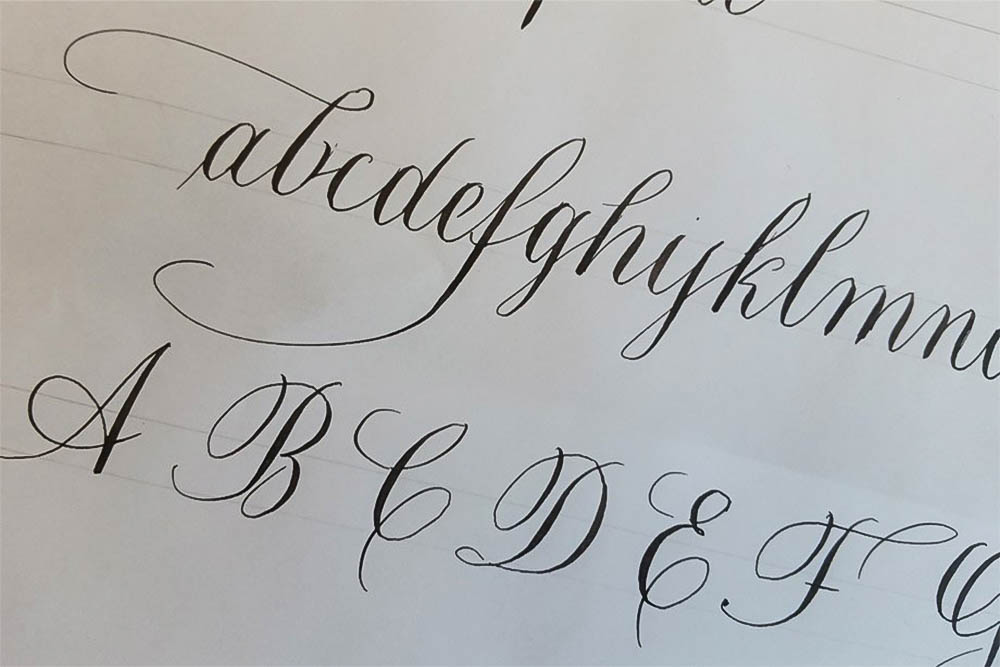 abcdefghijklmn
A B C D E F G